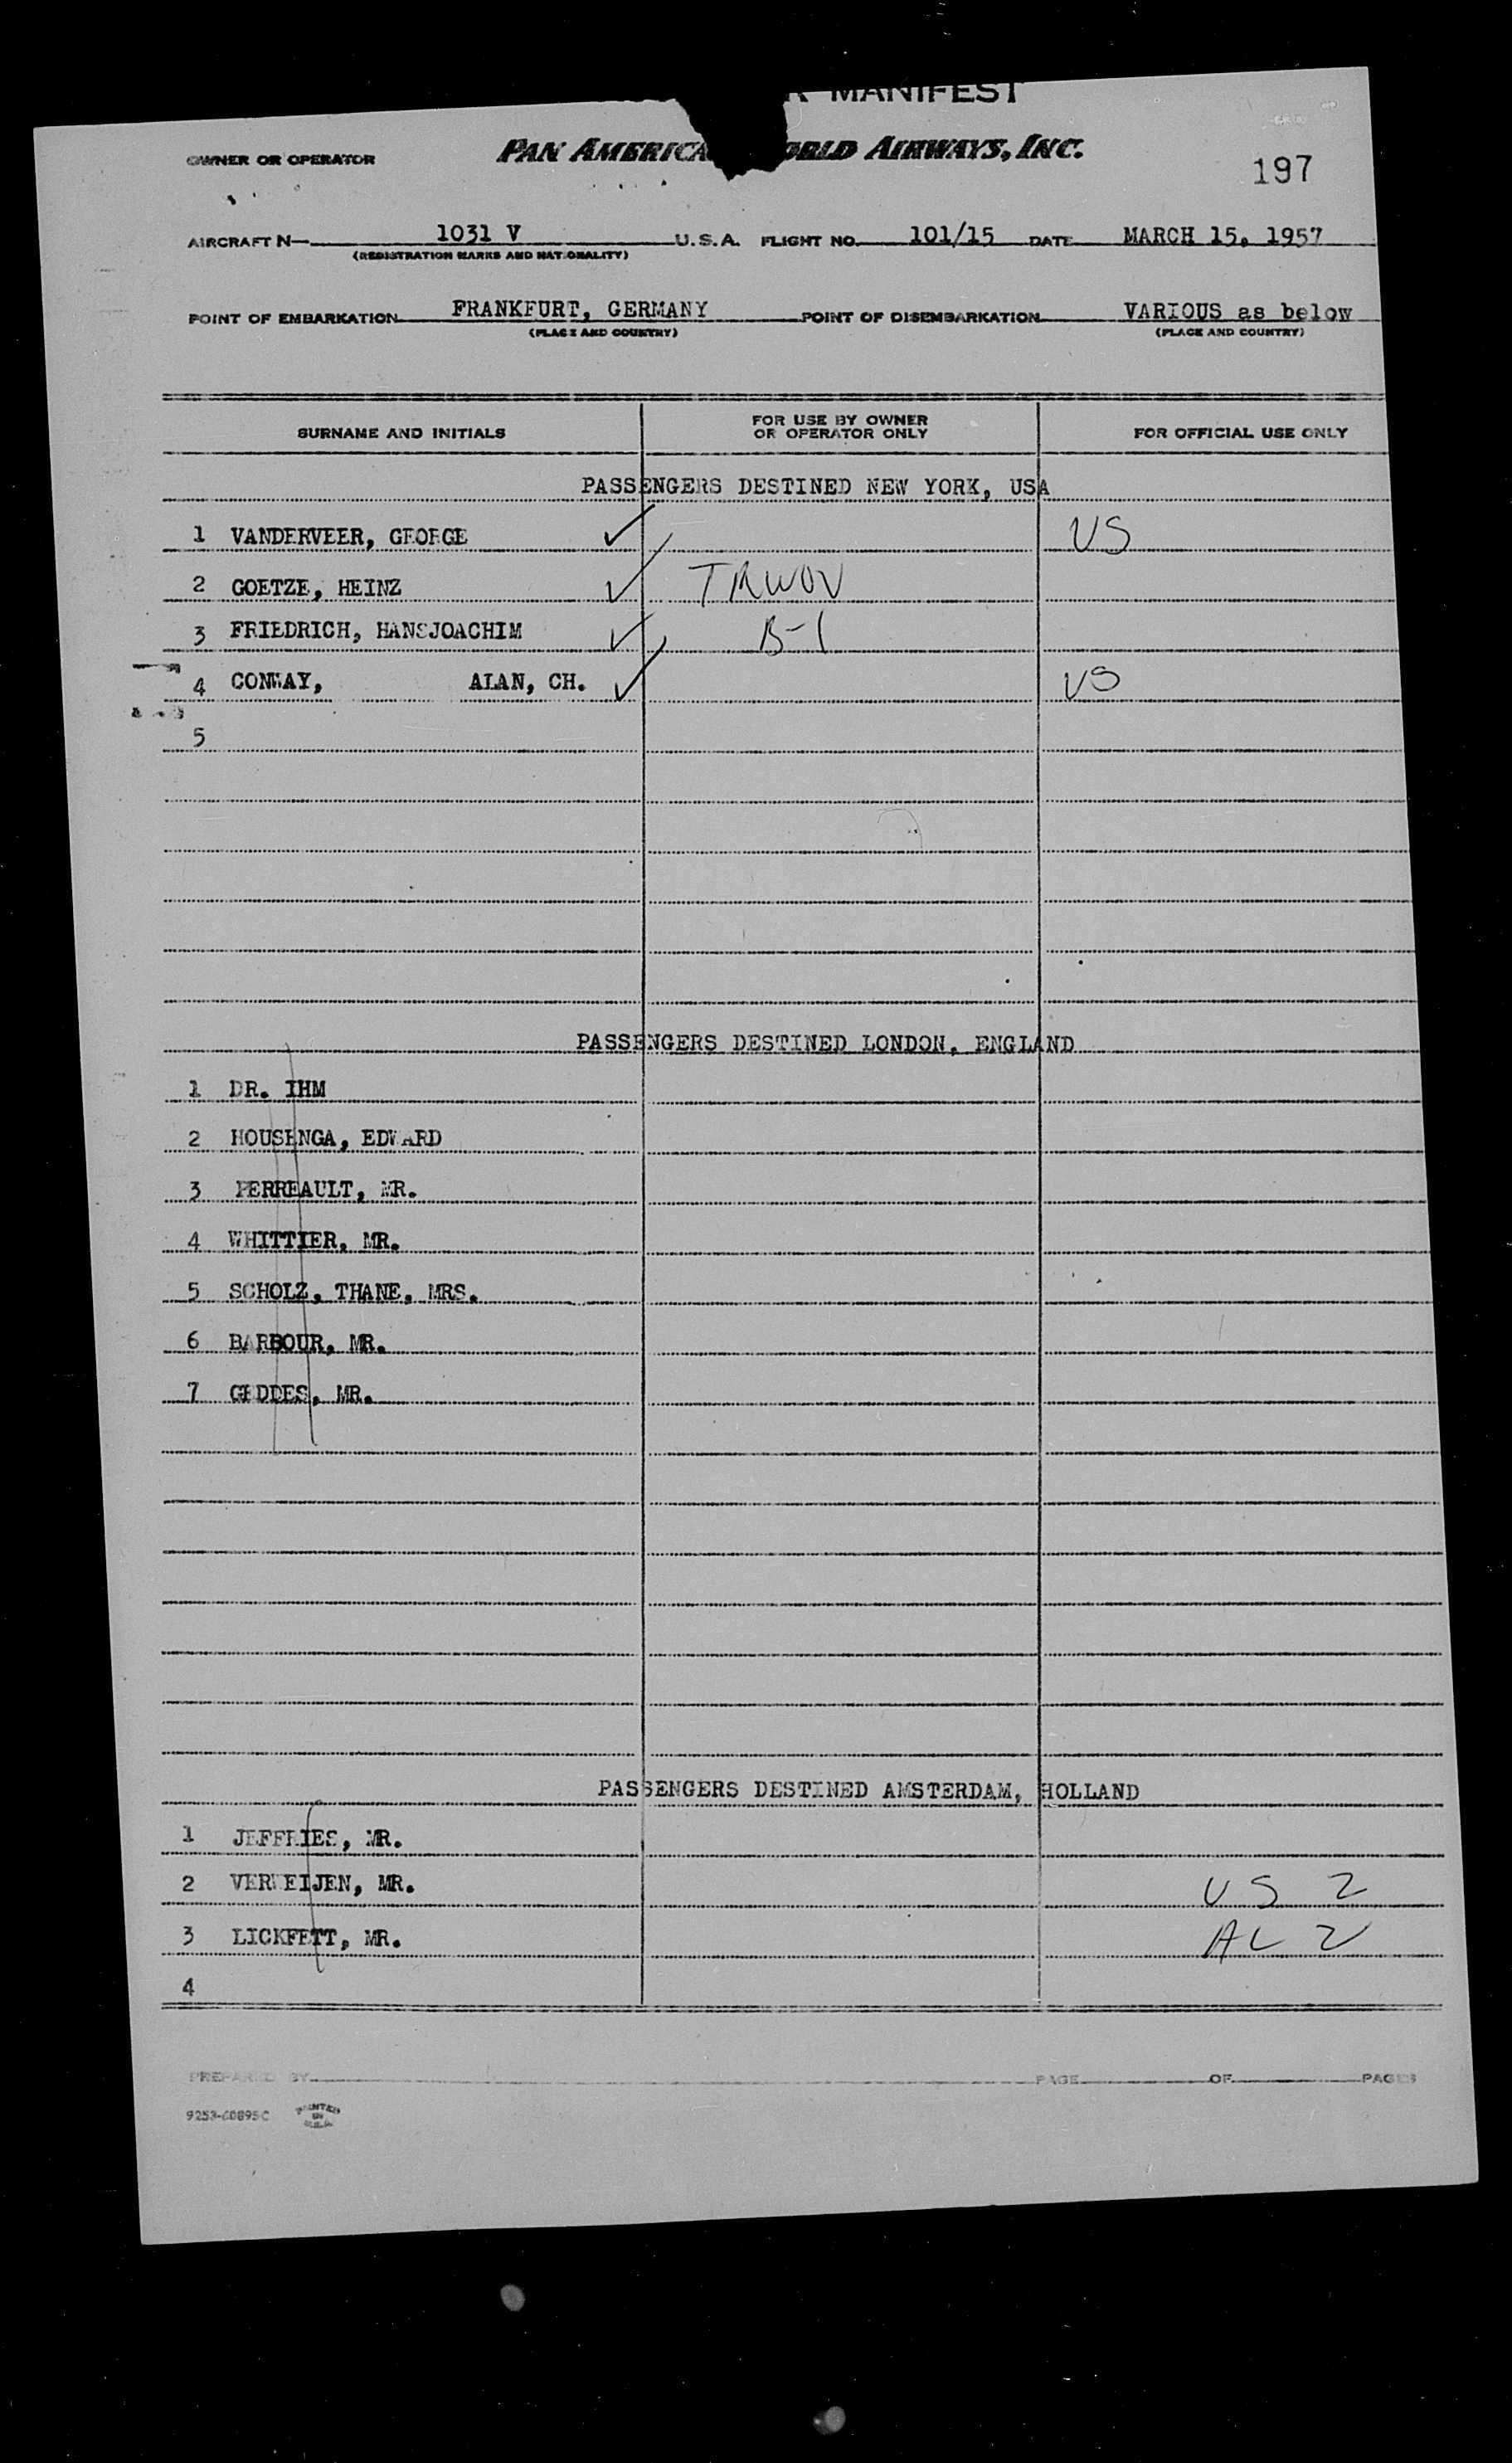 MANIFEST
OWNER OR OPERATOR PAN AMERICA ORLD AIRWAYS, INC.
197
AIRCRAFT N— 1031 V U.S.A. FLIGHT NO. 101/15 DATE MARCH 15, 1957
(REGISTRATION MARKS AND NATIONALITY)
POINT OF EMBARKATION FRANKFURT, GERMANY POINT OF DISEMBARKATION VARIOUS as below
(PLACE AND COUNTRY) (PLACE AND COUNTRY)
SURNAME AND INITIALS FOR USE BY OWNER OR OPERATOR ONLY FOR OFFICIAL USE ONLY
PASSENGERS DESTINED NEW YORK, USA
1 VANDERVEER, GEORGE ✓ US
2 GOETZE, HEINZ ✓ TRWOV
3 FRIEDRICH, HANSJOACHIM ✓ B-1
4 CONWAY, ALAN, CH. ✓ US
5
PASSENGERS DESTINED LONDON, ENGLAND
1 DR. IHM
2 HOUSENGA, EDWARD
3 PERREAULT, MR.
4 WHITTIER, MR.
5 SCHOLZ, THANE, MRS.
6 BARBOUR, MR.
7 GEDDES, MR.
PASSENGERS DESTINED AMSTERDAM, HOLLAND
1 JEFFRIES, MR.
2 VERWEIJEN, MR. US 2
3 LICKFETT, MR. AL 2
4
PREPARED BY PAGE OF PAGES
9253-60895C PRINTED IN U.S.A.